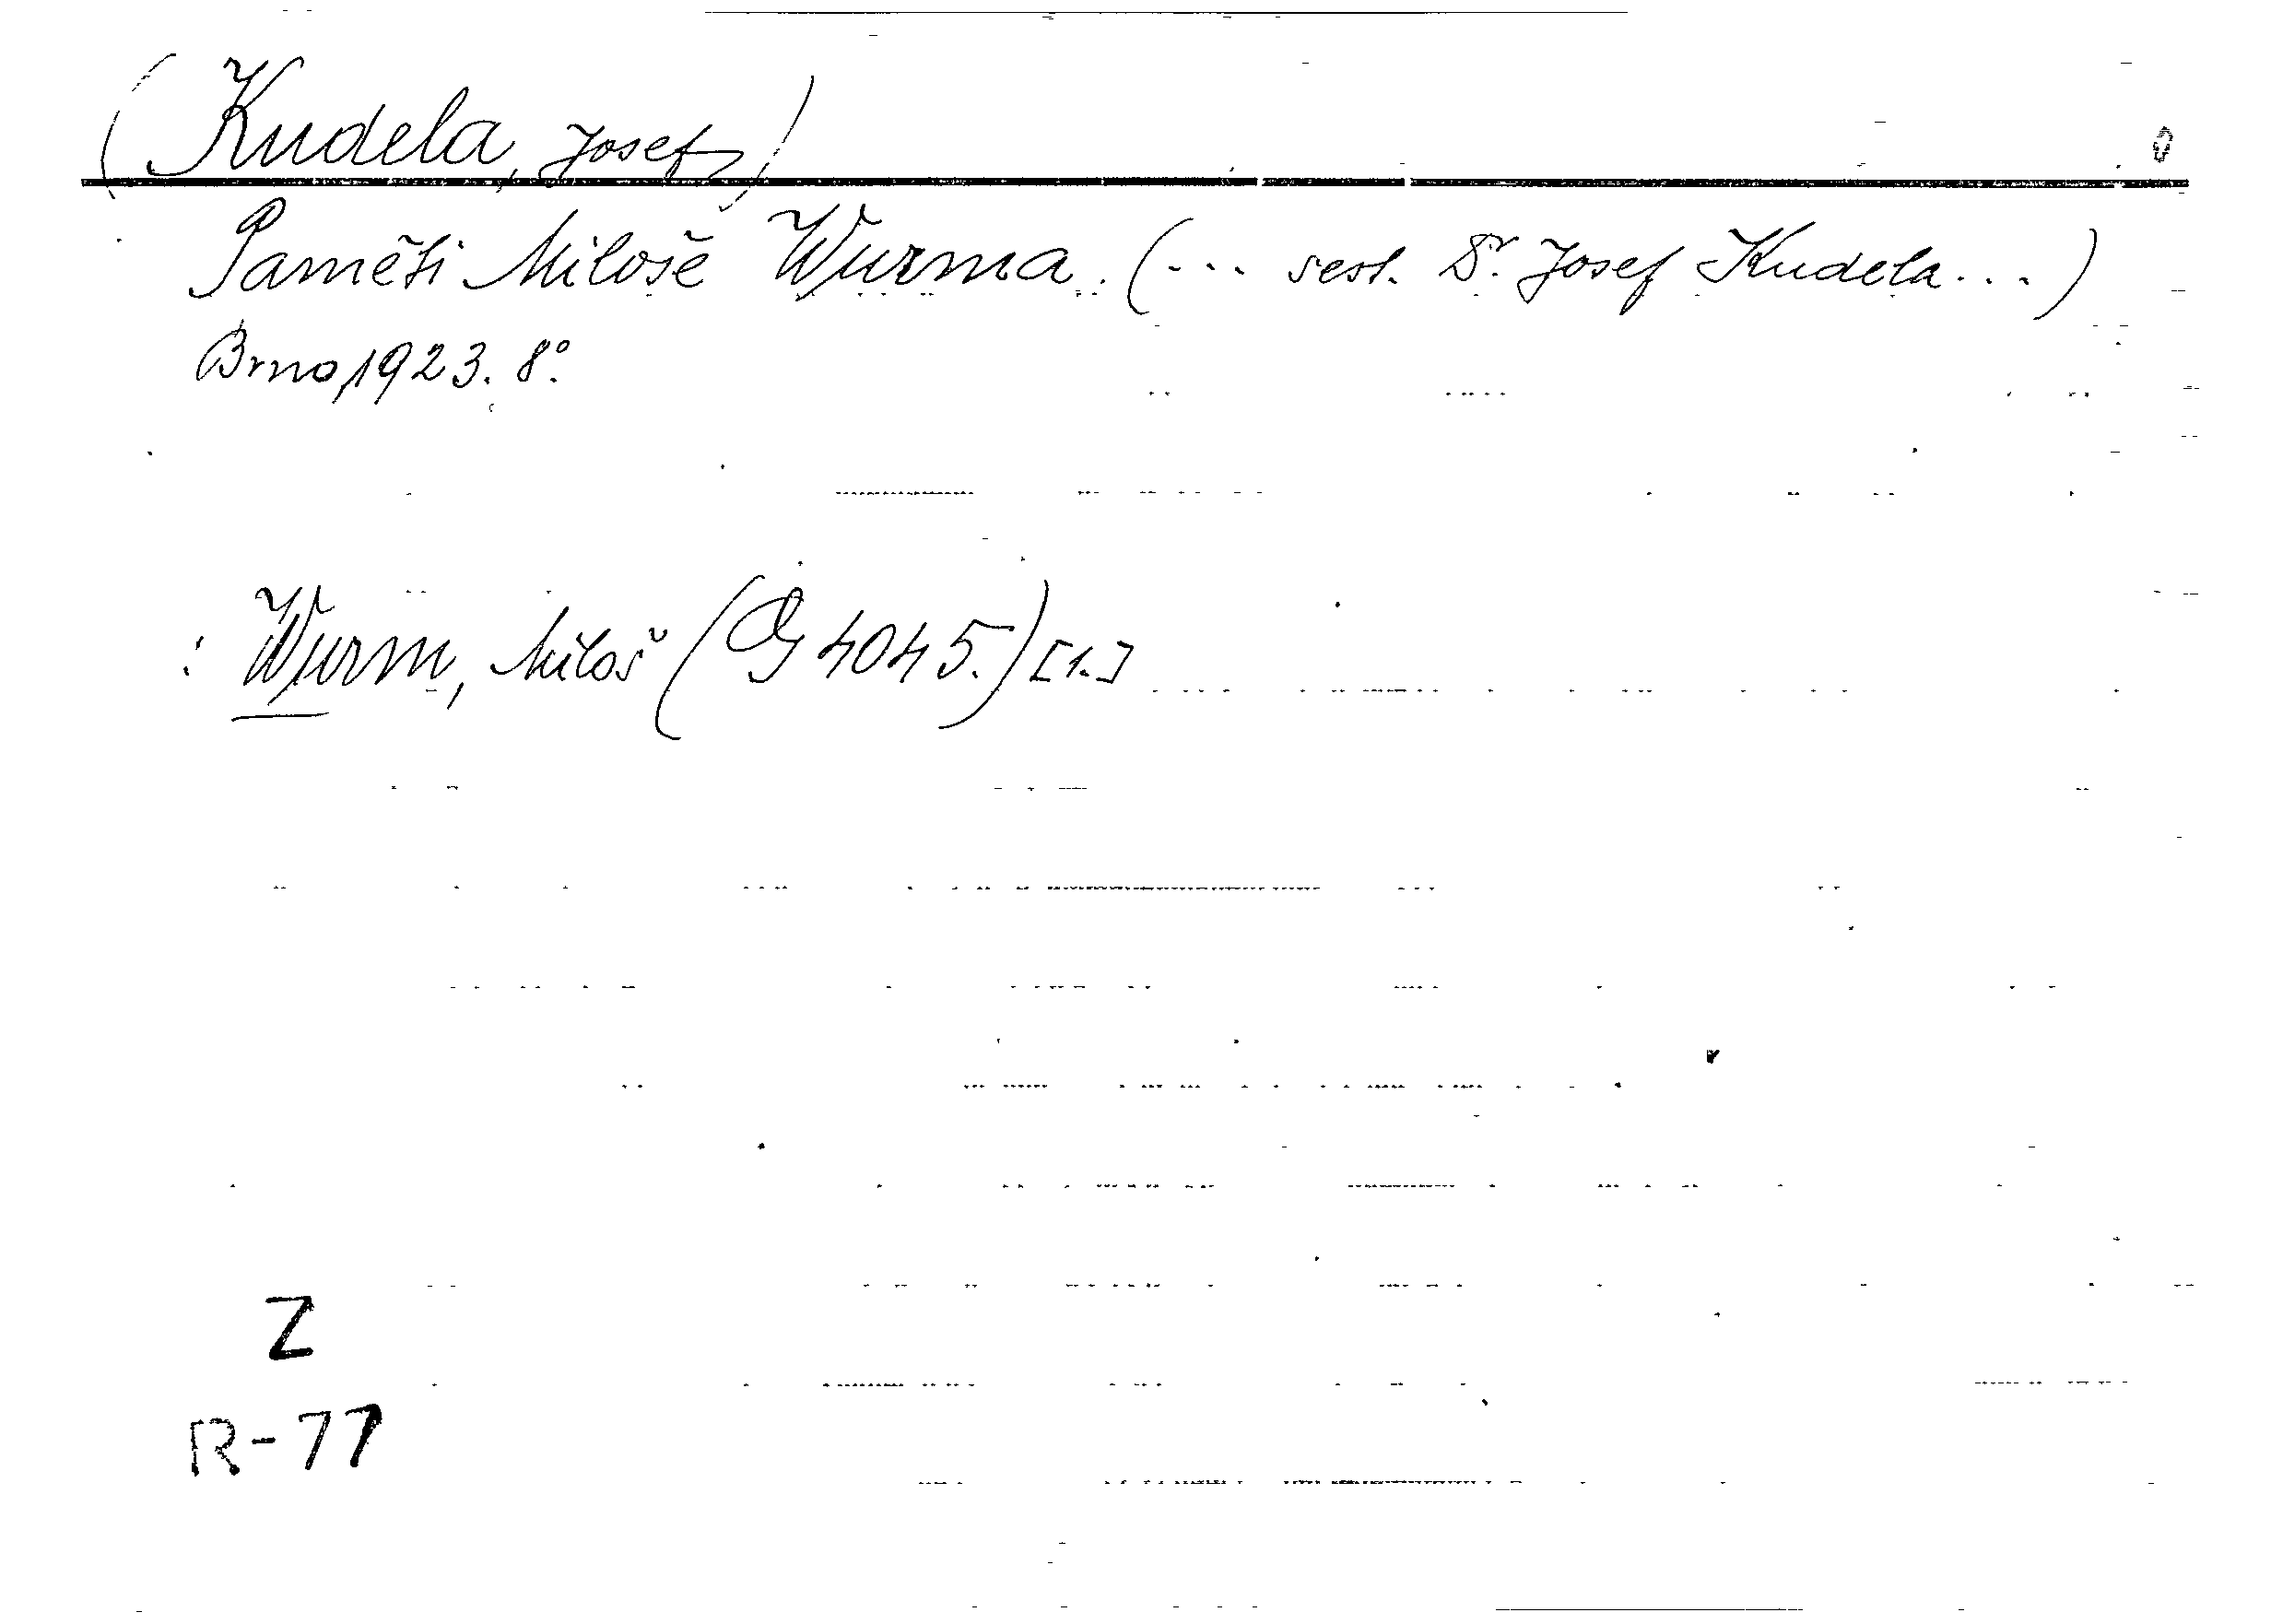 (Kudela, Josef)
Paměti Miloše Wurma. (... sest. Dr. Josef Kudela...)
Brno, 1923. 8°.
: Wurm, Miloš (G 4045.) [1.]
Z
R-77